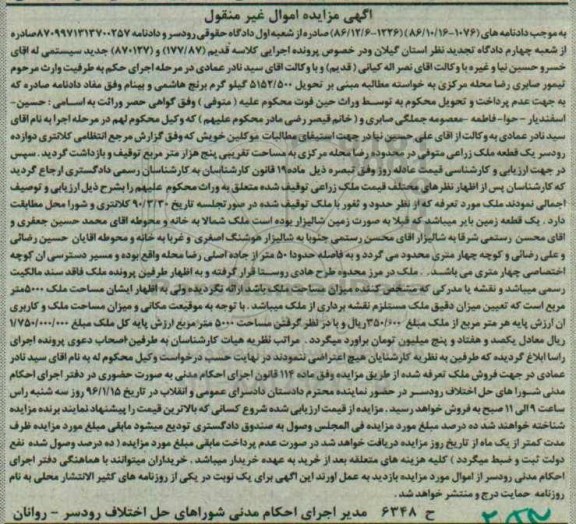 آگهی مزایده اموال غیر منقول
به موجب دادنامه های (۱۰۷۶-۸۶/۱۰/۱۶) (۱۲۲۶-۸۶/۱۲/۶) صادره از شعبه اول دادگاه حقوقی رودسر و دادنامه ۸۷۰۹۹۷۱۳۱۳۷۰۰۲۵۷ صادره
از شعبه چهارم دادگاه تجدید نظر استان گیلان ودر خصوص پرونده اجرایی کلاسه قدیم (۱۷۷/۸۷) و (۸۷۰۱۳۷) جدید سیستمی له آقای
خسرو حسین نیا و غیره با وکالت اقای نصر اله کیانی (قدیم) و با وکالت اقای سید نادر عمادی در مرحله اجرای حکم به طرفیت وارث مرحوم
تیمور صابری رضا محله مرکزی به خواسته مطالبه مبنی بر تحویل ۵۱۵۲/۵۰۰ گیلو گرم برنج هاشمی و بینام وفق مفاد دادنامه صادره که
به جهت عدم پرداخت و تحویل محکوم به توسط وراث حین فوت محکوم علیه (متوفی) وفق گواهی حصر وراثت به اسامی : حسین-
اسفندیار -حوا-فاطمه -معصومه جملگی صابری و (خانم قیصر رضی مادر محکوم علیهم) که وکیل محکوم لهم در مرحله اجرا به نام اقای
سید نادر عمادی به وکالت از آقای علی حسین نیا در جهت استیفای مطالبات موکلین خویش که وفق گزارش مرجع انتظامی کلانتری دوازده
رودسر یک قطعه ملک زراعی متوفی در محدوده رضا محله مرکزی به مساحت تقریبی پنج هزار متر مربع توقیف و بازداشت گردید. سپس
در جهت ارزیابی و کارشناسی قیمت عادله روز وفق تبصره ذیل ماده ۱۹ قانون کارشناسان به کارشناسان رسمی دادگستری ارجاع گردید
که کارشناسان پس از اظهار نظرهای مختلف قیمت ملک زراعی توقیف شده متعلق به وراث محکوم علیهم را بشرح ذیل ارزیابی و توصیف
اجمالی نمودند ملک مورد تعرفه که از نظر حدود و ثغور با ملک توقیف شده در صورتجلسه تاریخ ۹۰/۳/۳۰ کلانتری و شورا محل مطابقت
دارد . یک قطعه زمین بایر میباشد که قبلا به صورت زمین شالیزار بوده است ملک شمالا به خانه و محوطه آقای محمد حسین جعفری و
آقای محسن رستمی شرقا به شالیزار آقای محسن رستمی جنوبا به شالیزار هوشنگ اصغری و غربا به خانه و محوطه اقایان حسین رضائی
و علی رضائی و کوچه چهار متری محدود می گردد و به فاصله حدودا ۵۰ متر از جاده اصلی رضا محله واقع بوده و مسیر دسترسی آن کوچه
اختصاصی چهار متری می باشد. . ملک در مرز محدوه طرح هادی روستا قرار گرفته و به اظهار طرفین پرونده ملک فاقد سند مالکیت
رسمی میباشد و نقشه یا مدرکی که مشخص کننده میزان مساحت ملک باشد ارائه نگردیده ولی به اظهار ایشان مساحت ملک ۵۰۰۰متر
مربع است که تعیین میزان دقیق ملک مستلزم نقشه برداری از ملک میباشد . با توجه به موقیعت مکانی و میزان مساحت ملک و کاربری
ان ارزش پایه هر متر مربع از ملک مبلغ ۳۵۰/۶۰۰ ریال و با در نظر گرفتن مساحت ۵۰۰۰ متر مربع ارزش پایه کل ملک مبلغ ۱/۷۵۰/۰۰۰/۰۰۰
ریال معادل یکصد و هفتاد و پنج میلیون تومان برآورد میگردد . مراتب نظریه هیات کارشناسان به طرفین اصحاب دعوی پرونده اجرای
راسا ابلاغ گردیده که طرفین به نظریه کارشناسان هیچ اعتراضی ننمودند در نهایت حسب درخواست وکیل محکوم له به نام اقای سید نادر
عمادی در جهت فروش ملک تعرفه شده از طریق مزایده وفق ماده ۱۱۴ قانون اجرای احکام مدنی به صورت حضوری در دفتر اجرای احکام
مدنی شورا های حل اختلاف رودسر در حضور نماینده محترم دادستان دادسرای عمومی و انقلاب در تاریخ ۹۶/۱/۱۵ روز سه شنبه راس
ساعت ۹ الی ۱۱ صبح به فروش خواهد رسید . مزایده از قیمت ارزیابی شده شروع کسانی که بالاترین قیمت را پیشنهاد نمایند برنده مزایده
شناخته خواهند شد ده درصد مبلغ مورد مزایده فی المجلس وصول به صندوق دادگستری تودیع میشود مابقی مبلغ مورد مزایده ظرف
مدت کمتر از یک ماه از تاریخ روز مزایده دریافت خواهد شد در صورت عدم پرداخت مابقی مبلغ مورد مزایده (ده درصد وصول شده نفع
دولت ثبت و ضبط میگردد) کلیه هزینه های متعلقه بعد از خرید به عهده خریدار میباشد . خریداران میتوانند با هماهنگی دفتر اجرای
احکام مدنی رودسر از اموال مورد مزایده بازدید به عمل آورند این آگهی برای یک نوبت در یکی از روزنامه های کثیر الانتشار محلی به نام
روزنامه حمایت درج و منتشر خواهد شد.
ح ۶۳۴۸ مدیر اجرای احکام مدنی شوراهای حل اختلاف رودسر - روانان